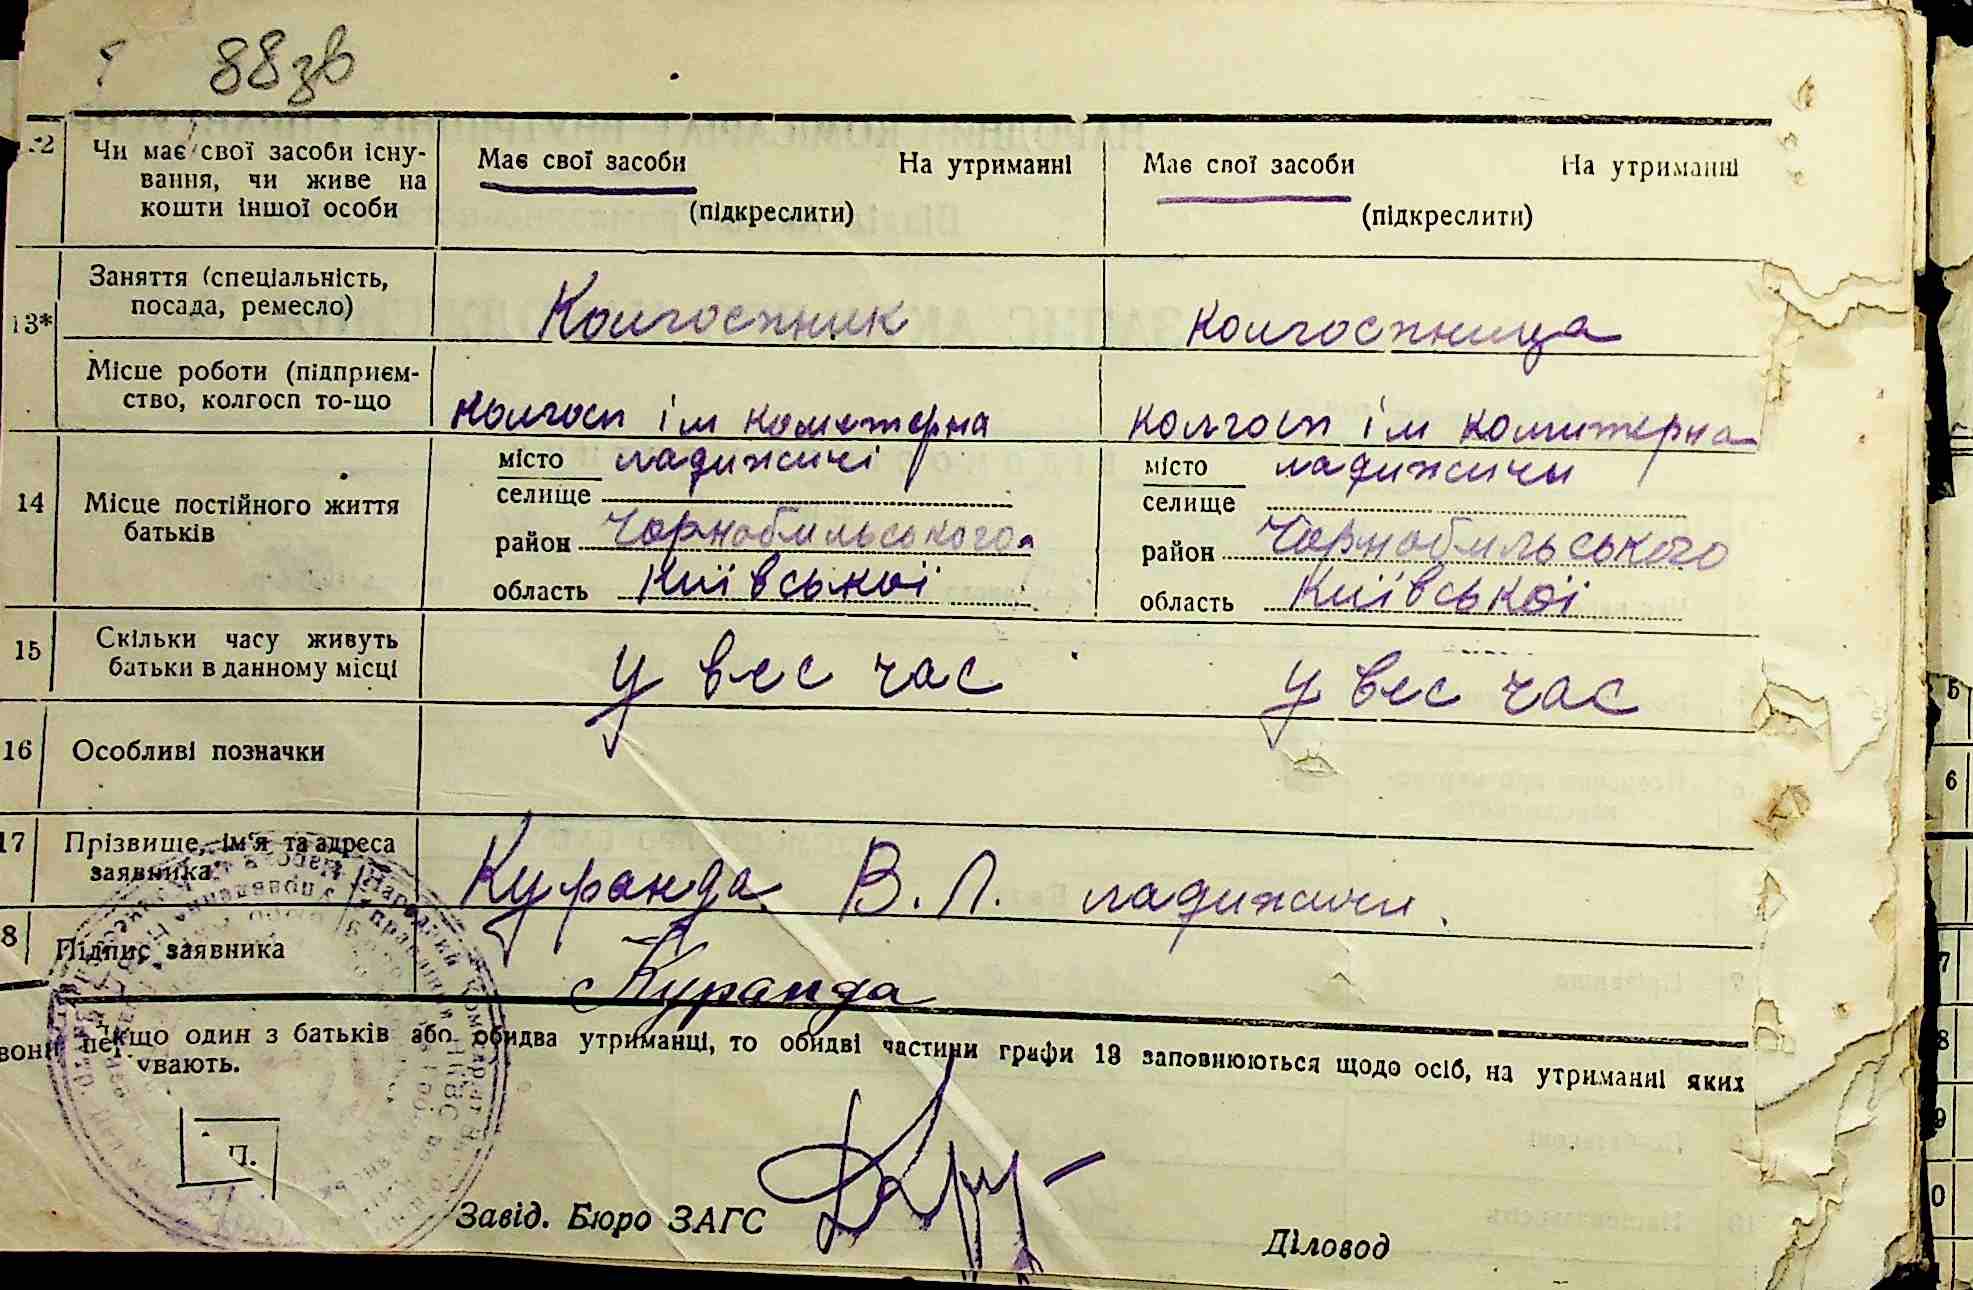 88зв
12 Чи має свої засоби існу-
вання, чи живе на
кошти іншої особи
Має свої засоби На утриманні
(підкреслити)
Має свої засоби На утриманні
(підкреслити)
13* Заняття (спеціальність,
посада, ремесло)
Колгоспник
колгоспница
Місце роботи (підприєм-
ство, колгосп то-що
колгосп ім комінтерна
колгосп ім комінтерна
14 Місце постійного життя
батьків
місто ладижичі
селище
район Чорнобильського
область Київської
місто ладижичи
селище
район Чорнобильського
область Київської
15 Скільки часу живуть
батьки в данному місці
у вес час
у вес час
16 Особливі позначки
17 Прізвище, ім'я та адреса
заявника
Куранда В. Л. ладижичи.
8 Підпис заявника
Куранда
Якщо один з батьків або обидва утриманці, то обидві частини графи 13 заповнюються щодо осіб, на утриманні яких
вони увають.
П.
Завід. Бюро ЗАГС
Діловод
5
6
7
8
9
0